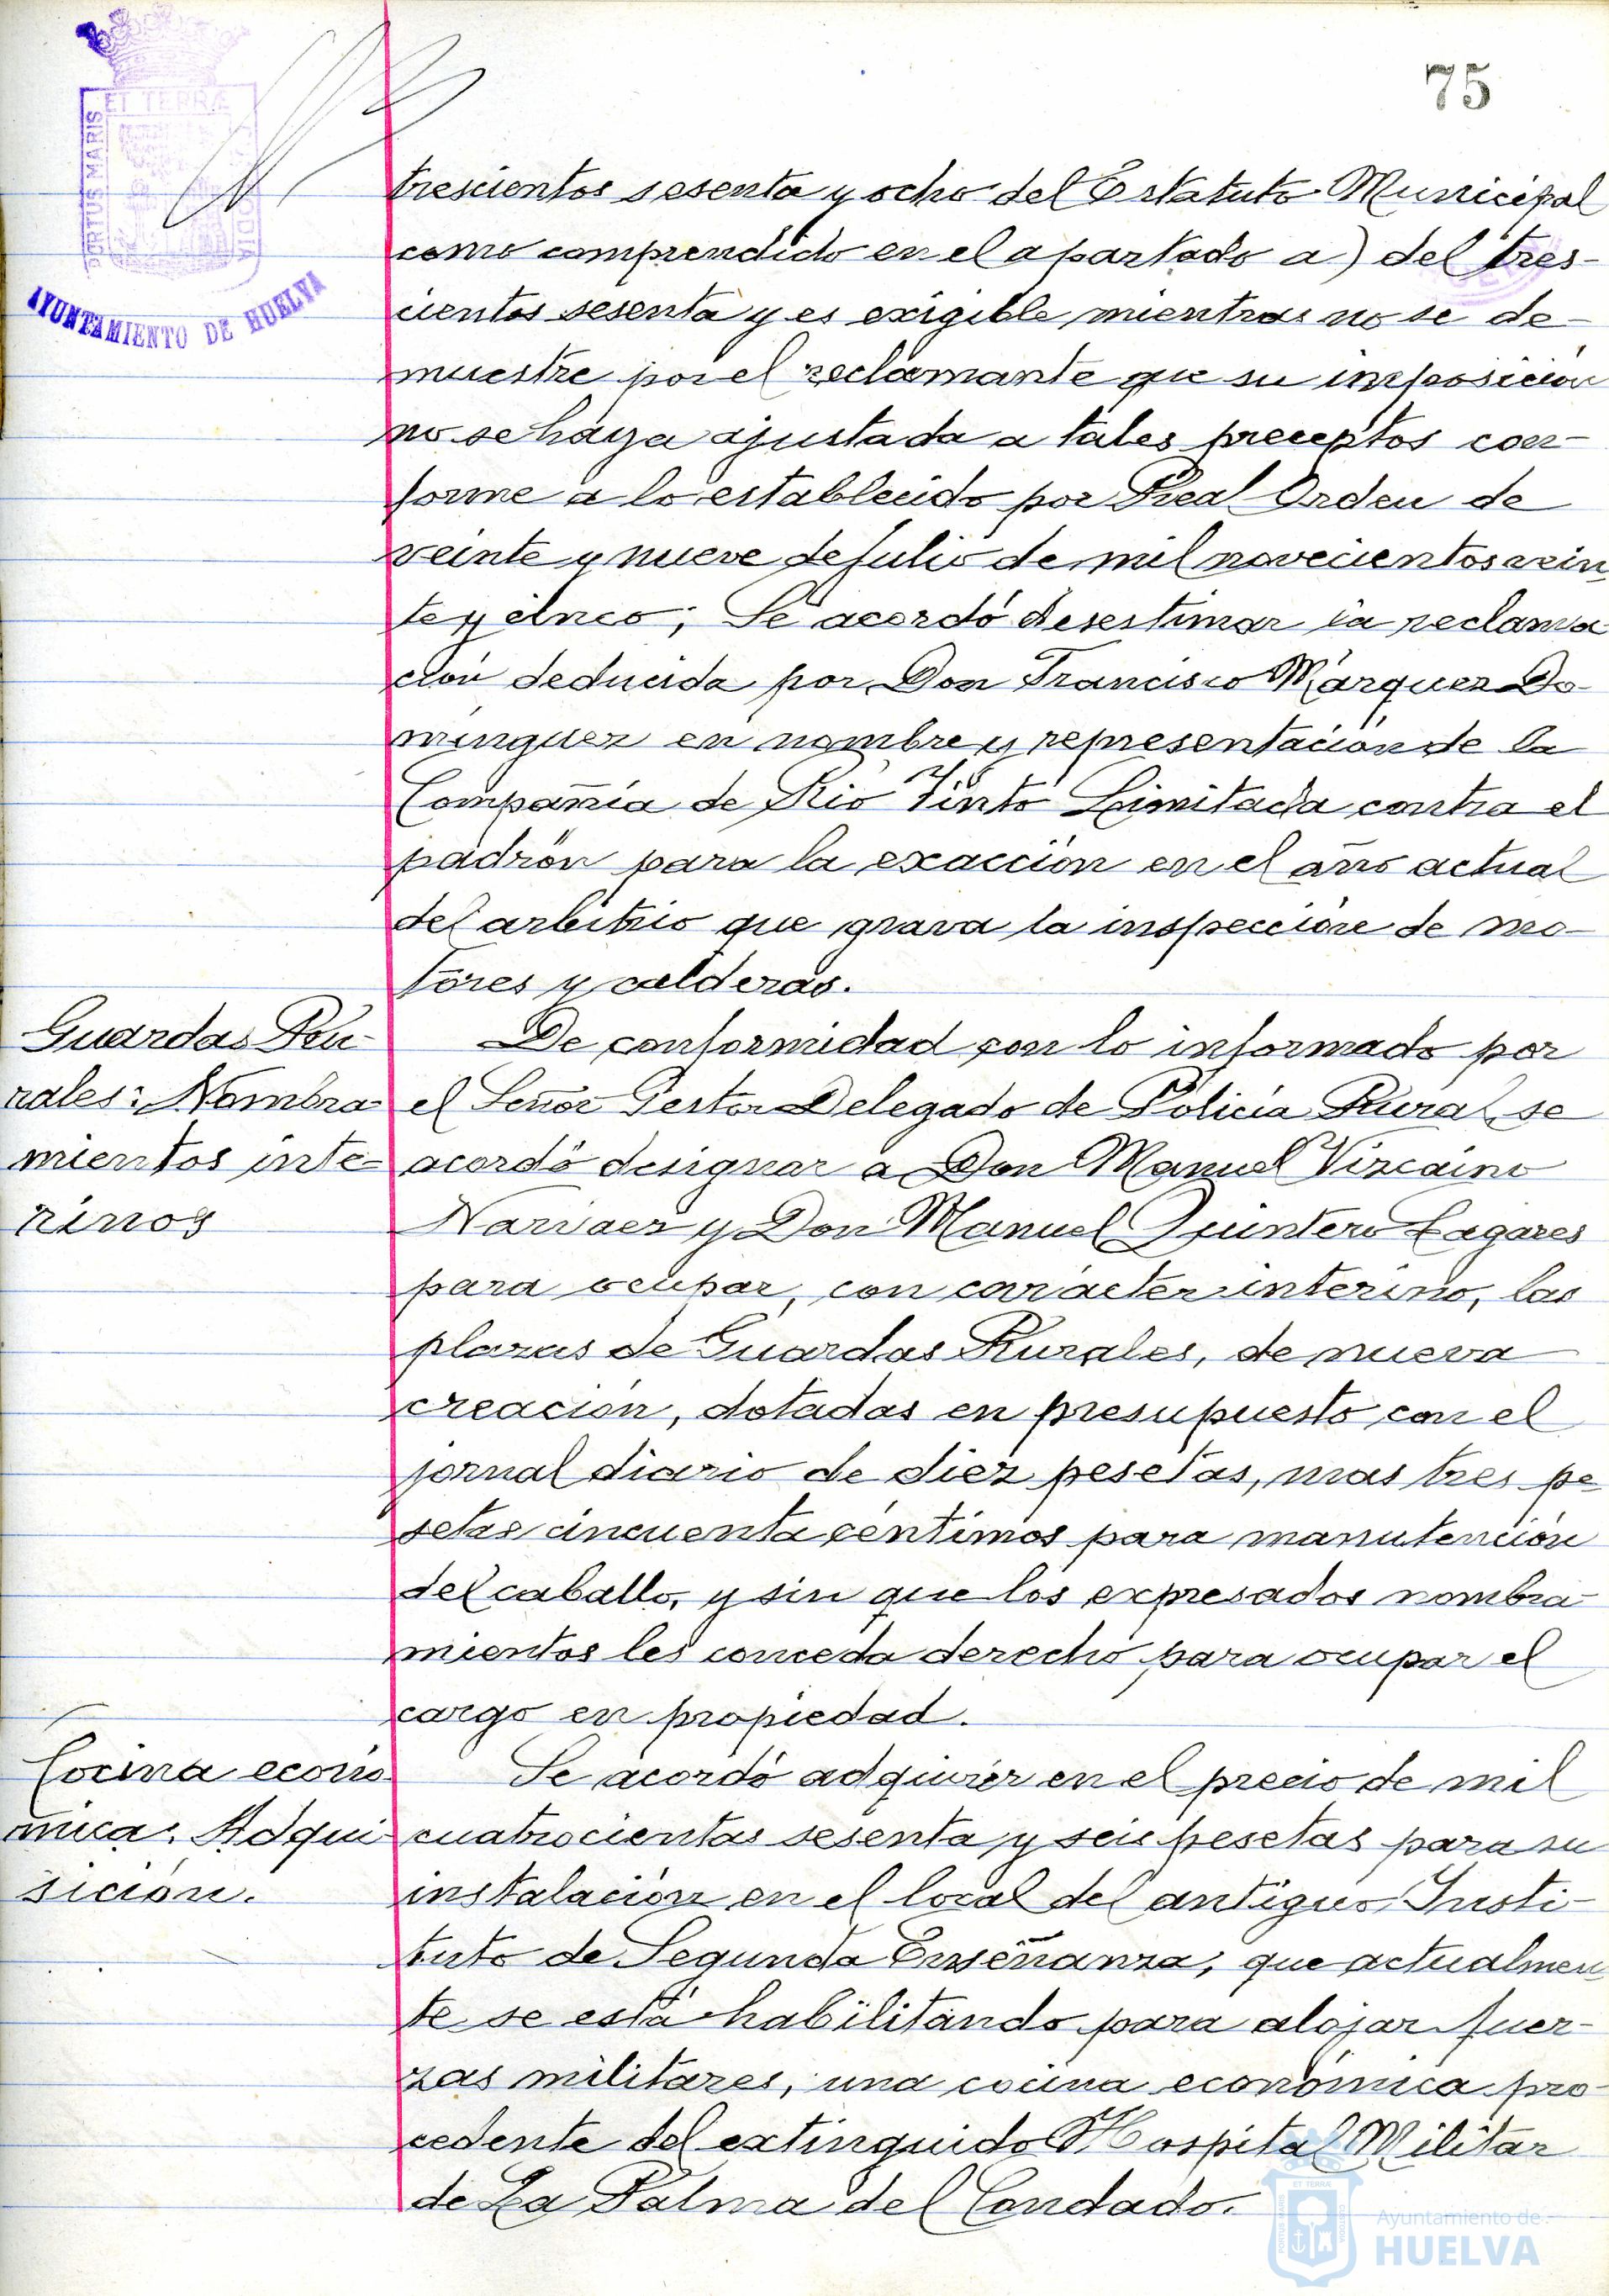 75
ET TERRÆ
PORTUS MARIS
CUSTODIA
AYUNTAMIENTO DE HUELVA
trescientos sesenta y ocho del Estatuto Municipal
como comprendido en el apartado a) del tres-
cientos sesenta y es exigible mientras no se de-
muestre por el reclamante que su imposición
no se haya ajustada a tales preceptos con-
forme a lo establecido por Real Orden de
veinte y nueve de Julio de mil novecientos vein
te y cinco; Se acordó desestimar la reclama
ción deducida por Don Francisco Márquez Do-
minguez en nombre y representación de la
Compañía de Rio Tinto Limitada contra el
padrón para la exacción en el año actual
del arbitrio que grava la inspección de mo-
tores y calderas.
Guardas Ru-
rales: Nombra-
mientos inte-
rinos
De conformidad con lo informado por
el Señor Gestor Delegado de Policía Rural, se
acordó designar a Don Manuel Vizcaino
Narvaez y Don Manuel Quintero Lagares
para ocupar, con carácter interino, las
plazas de Guardas Rurales, de nueva
creación, dotadas en presupuesto con el
jornal diario de diez pesetas, mas tres pe-
setas cincuenta céntimos para manutención
del caballo, y sin que los expresados nombra-
mientos les conceda derecho para ocupar el
cargo en propiedad.
Cocina econó-
mica. Adqui-
sición.
Se acordó adquirir en el precio de mil
cuatrocientas sesenta y seis pesetas para su
instalación en el local del antiguo Insti-
tuto de Segunda Enseñanza, que actualmen
te se está habilitando para alojar fuer-
zas militares, una cocina económica pro-
cedente del extinguido Hospital Militar
de La Palma del Condado.
Ayuntamiento de
HUELVA